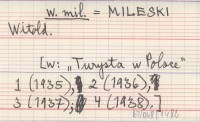 w. mil. = MILESKI
Witold.
[w: „Turysta w Polsce”
1 (1935), 2 (1936),
3 (1937), 4 (1938).]